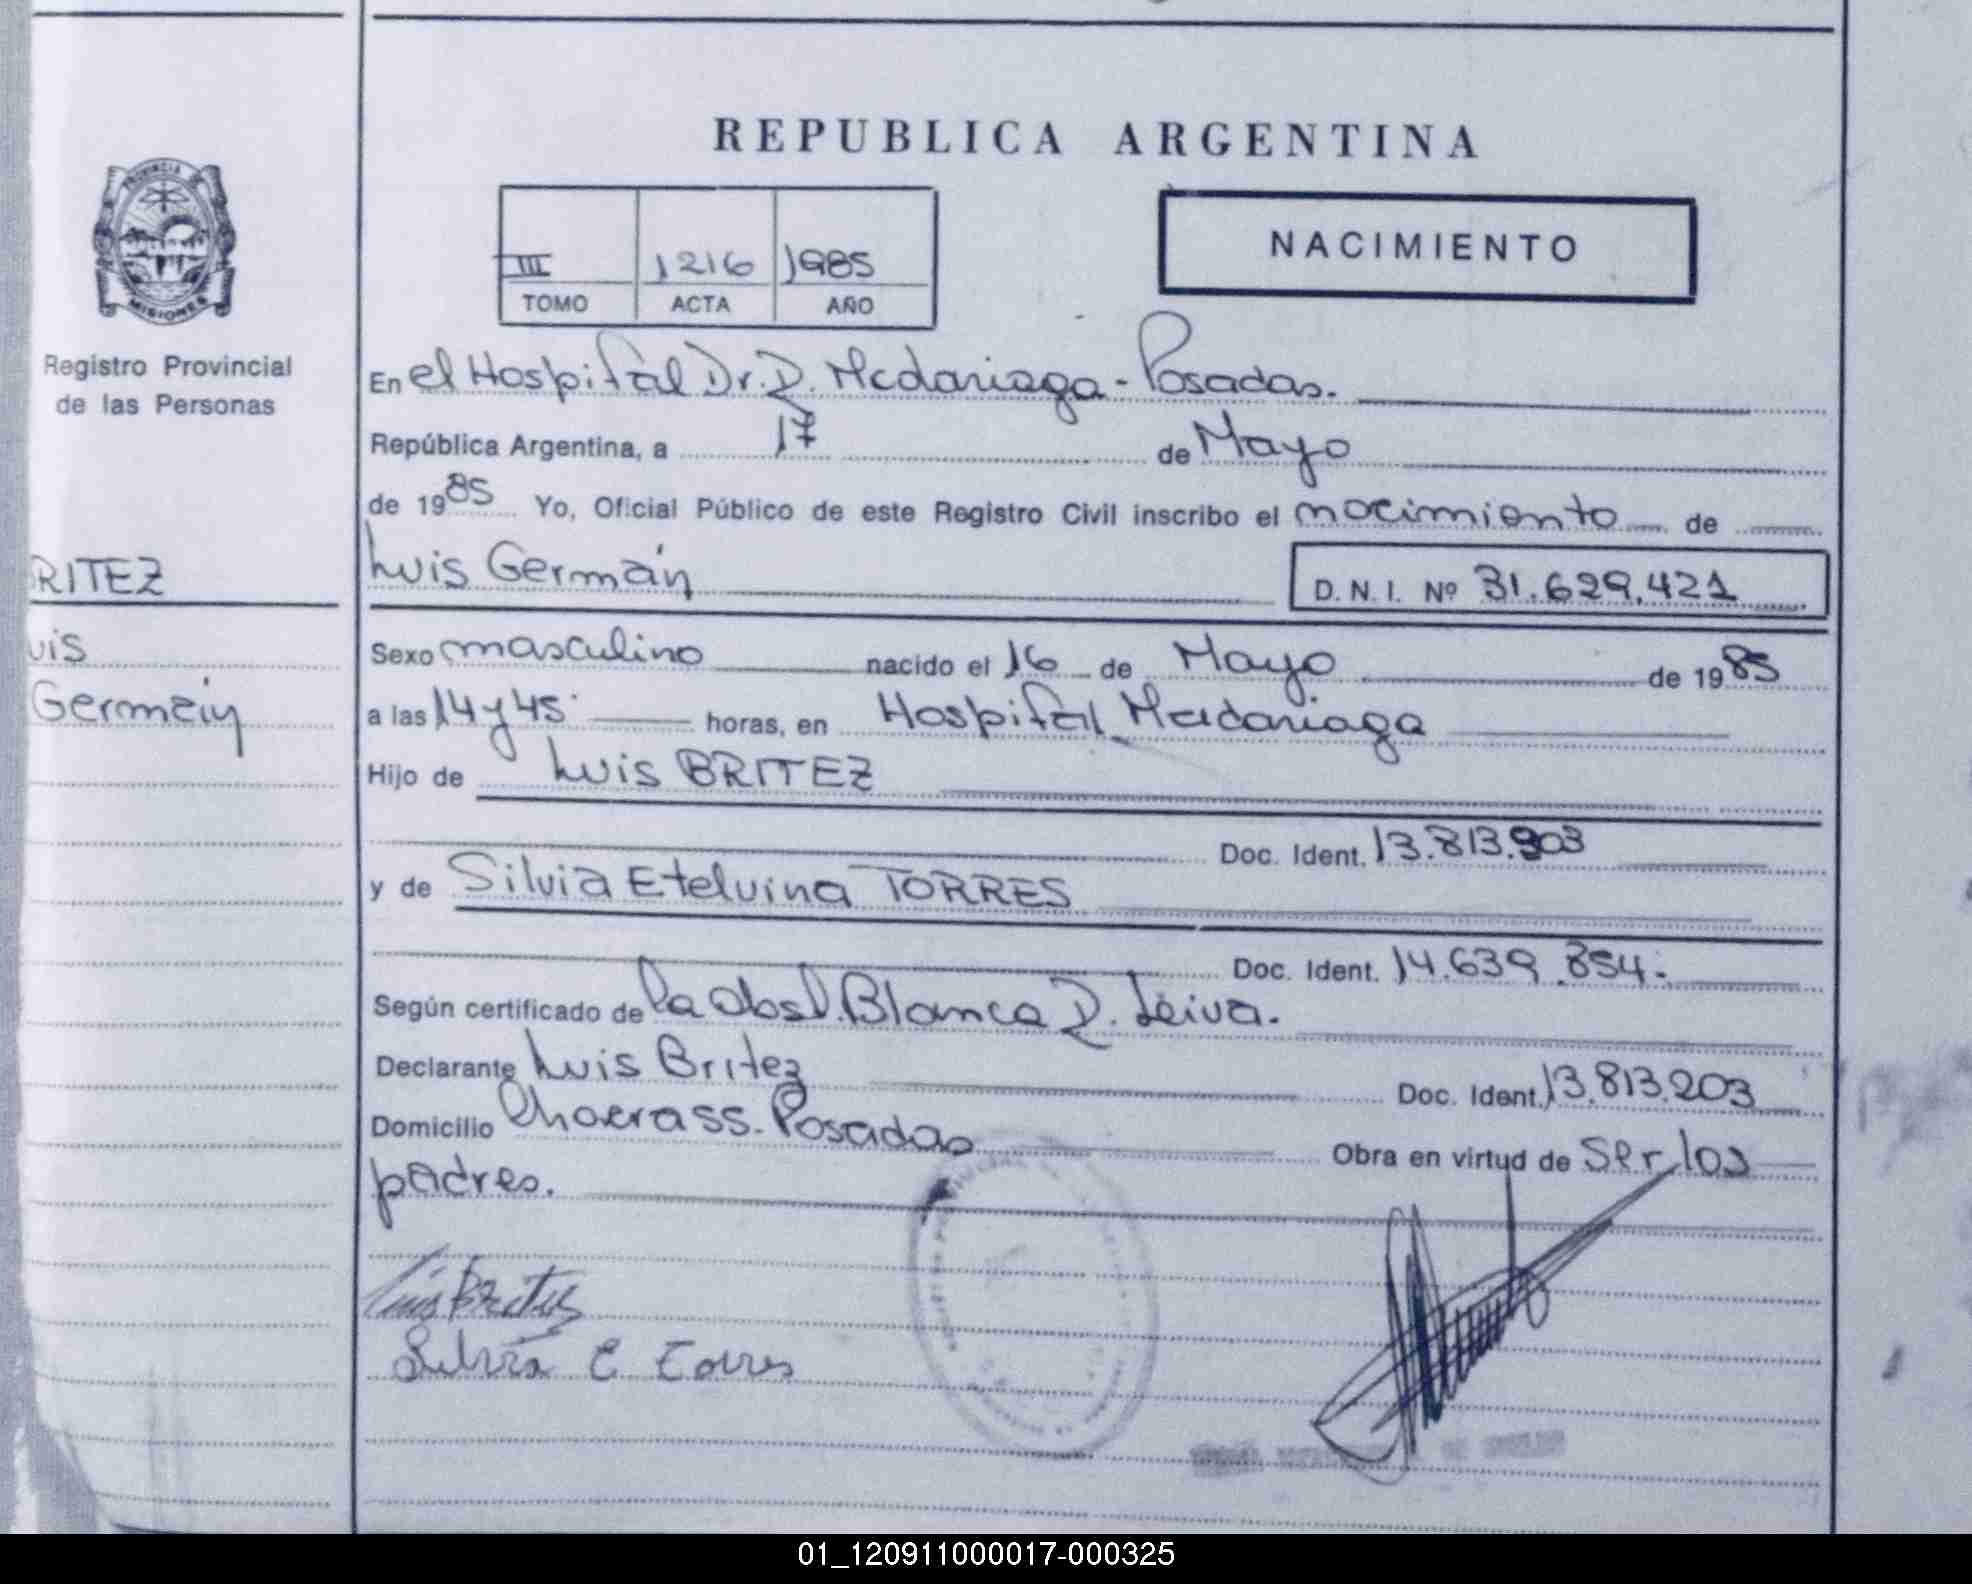 REPUBLICA ARGENTINA
PROVINCIA DE
MISIONES
Registro Provincial
de las Personas
RITEZ
uis
Germán
III 1216 1985
TOMO ACTA AÑO
NACIMIENTO
En el Hospital Dr. R. Madariaga - Posadas.
República Argentina, a 17 de Mayo
de 1985 Yo, Oficial Público de este Registro Civil inscribo el nacimiento de
Luis Germán D.N.I. Nº 31.629.421
Sexo masculino nacido el 16 de Mayo de 1985
a las 14 y 45 horas, en Hospital Madariaga
Hijo de Luis BRITEZ
Doc. Ident. 13.813.903
y de Silvia Etelvina TORRES
Doc. Ident. 14.639.854.
Según certificado de la obst. Blanca R. Leiva.
Declarante Luis Britez Doc. Ident. 13.813.203
Domicilio Posadas Obra en virtud de ser los
padres.
Luis Britez
Silvia E Torres
01_120911000017-000325